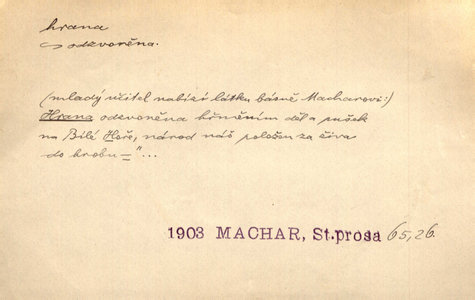 hrana
odzvoněna.
(mladý učitel nabízí látku básně Macharovi:)
Hrana odzvoněna hřměním děl a pušek
na Bílé Hoře, národ náš položen za živa
do hrobu="...
1903 MACHAR, St.prosa 65,26